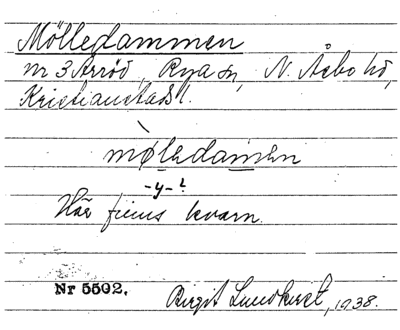 Mölledammen
nr 3 Arröd, Rya sn, N. Åsbo hd,
Kristianstads l.
mø̀ledamen
-y-?
Här finns kvarn.
Nr 5502. Birgit Lundkvist, 1938.